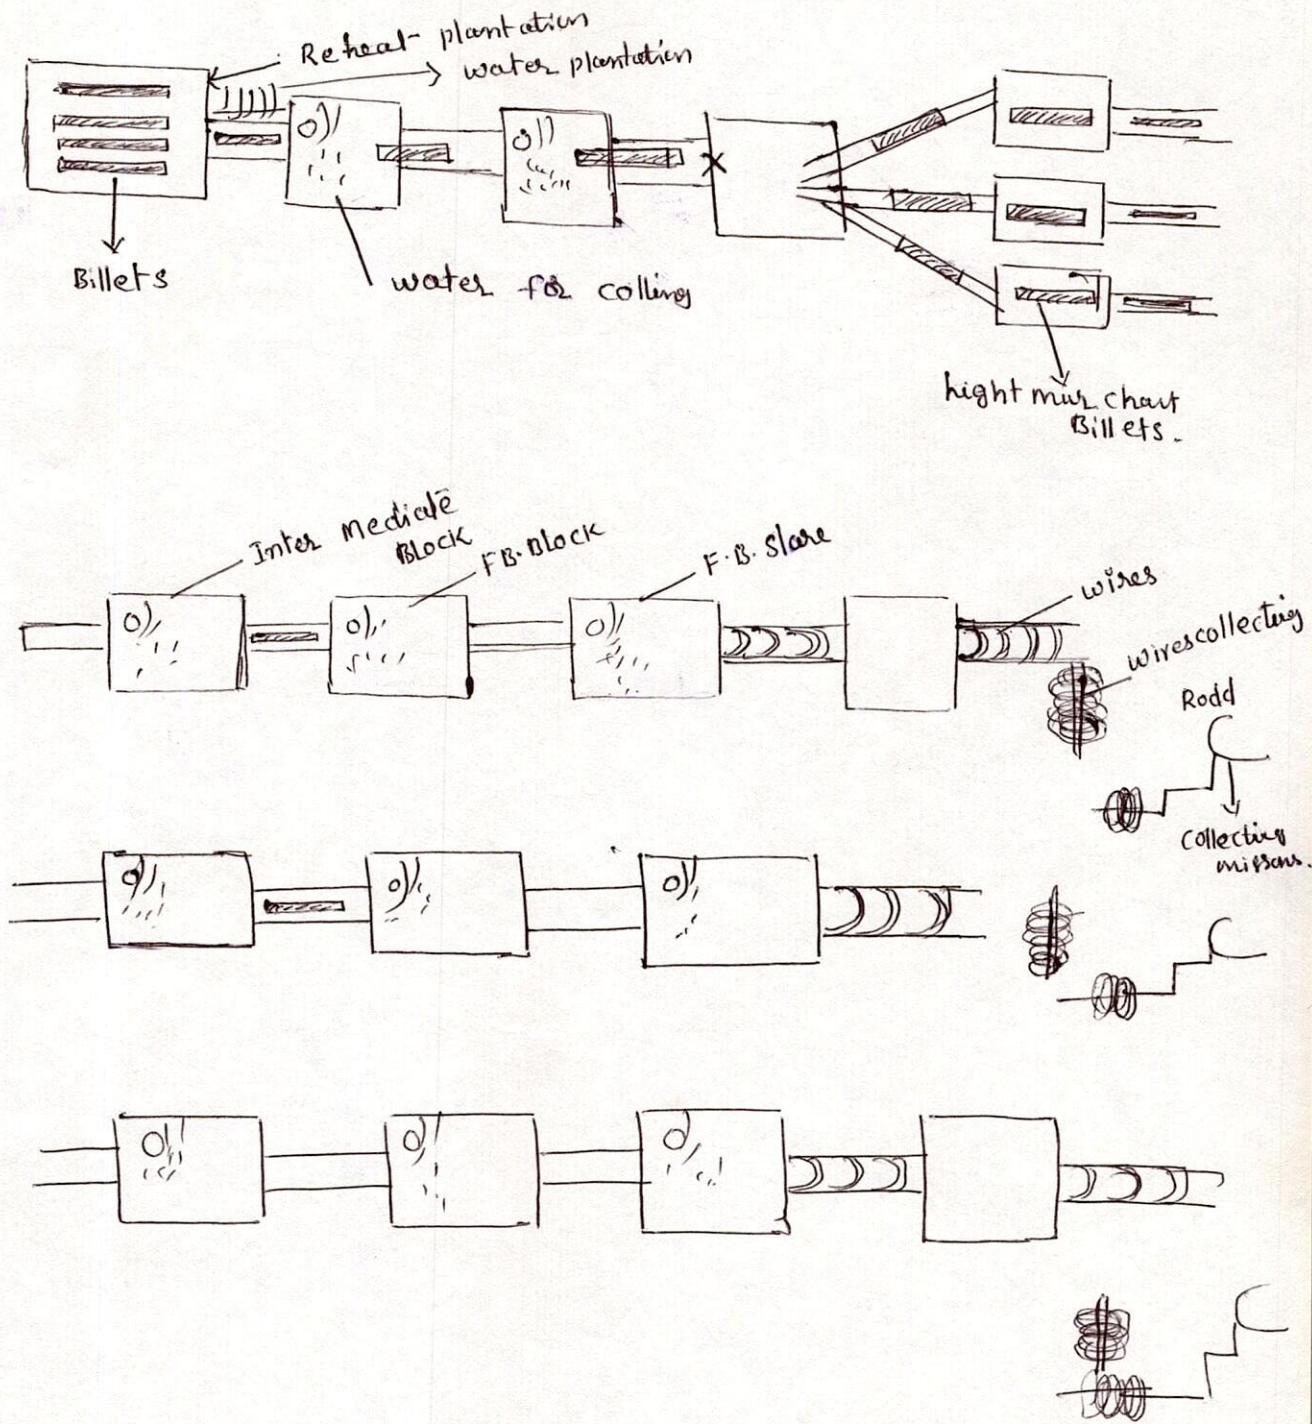 Reheat plantation
water plantation
Billets
water for colling
hight chart
Billets.
Inter mediate
BLOCK
FB. BLOCK
F.B. Slare
wires
wirescollecting
Rodd
collecting